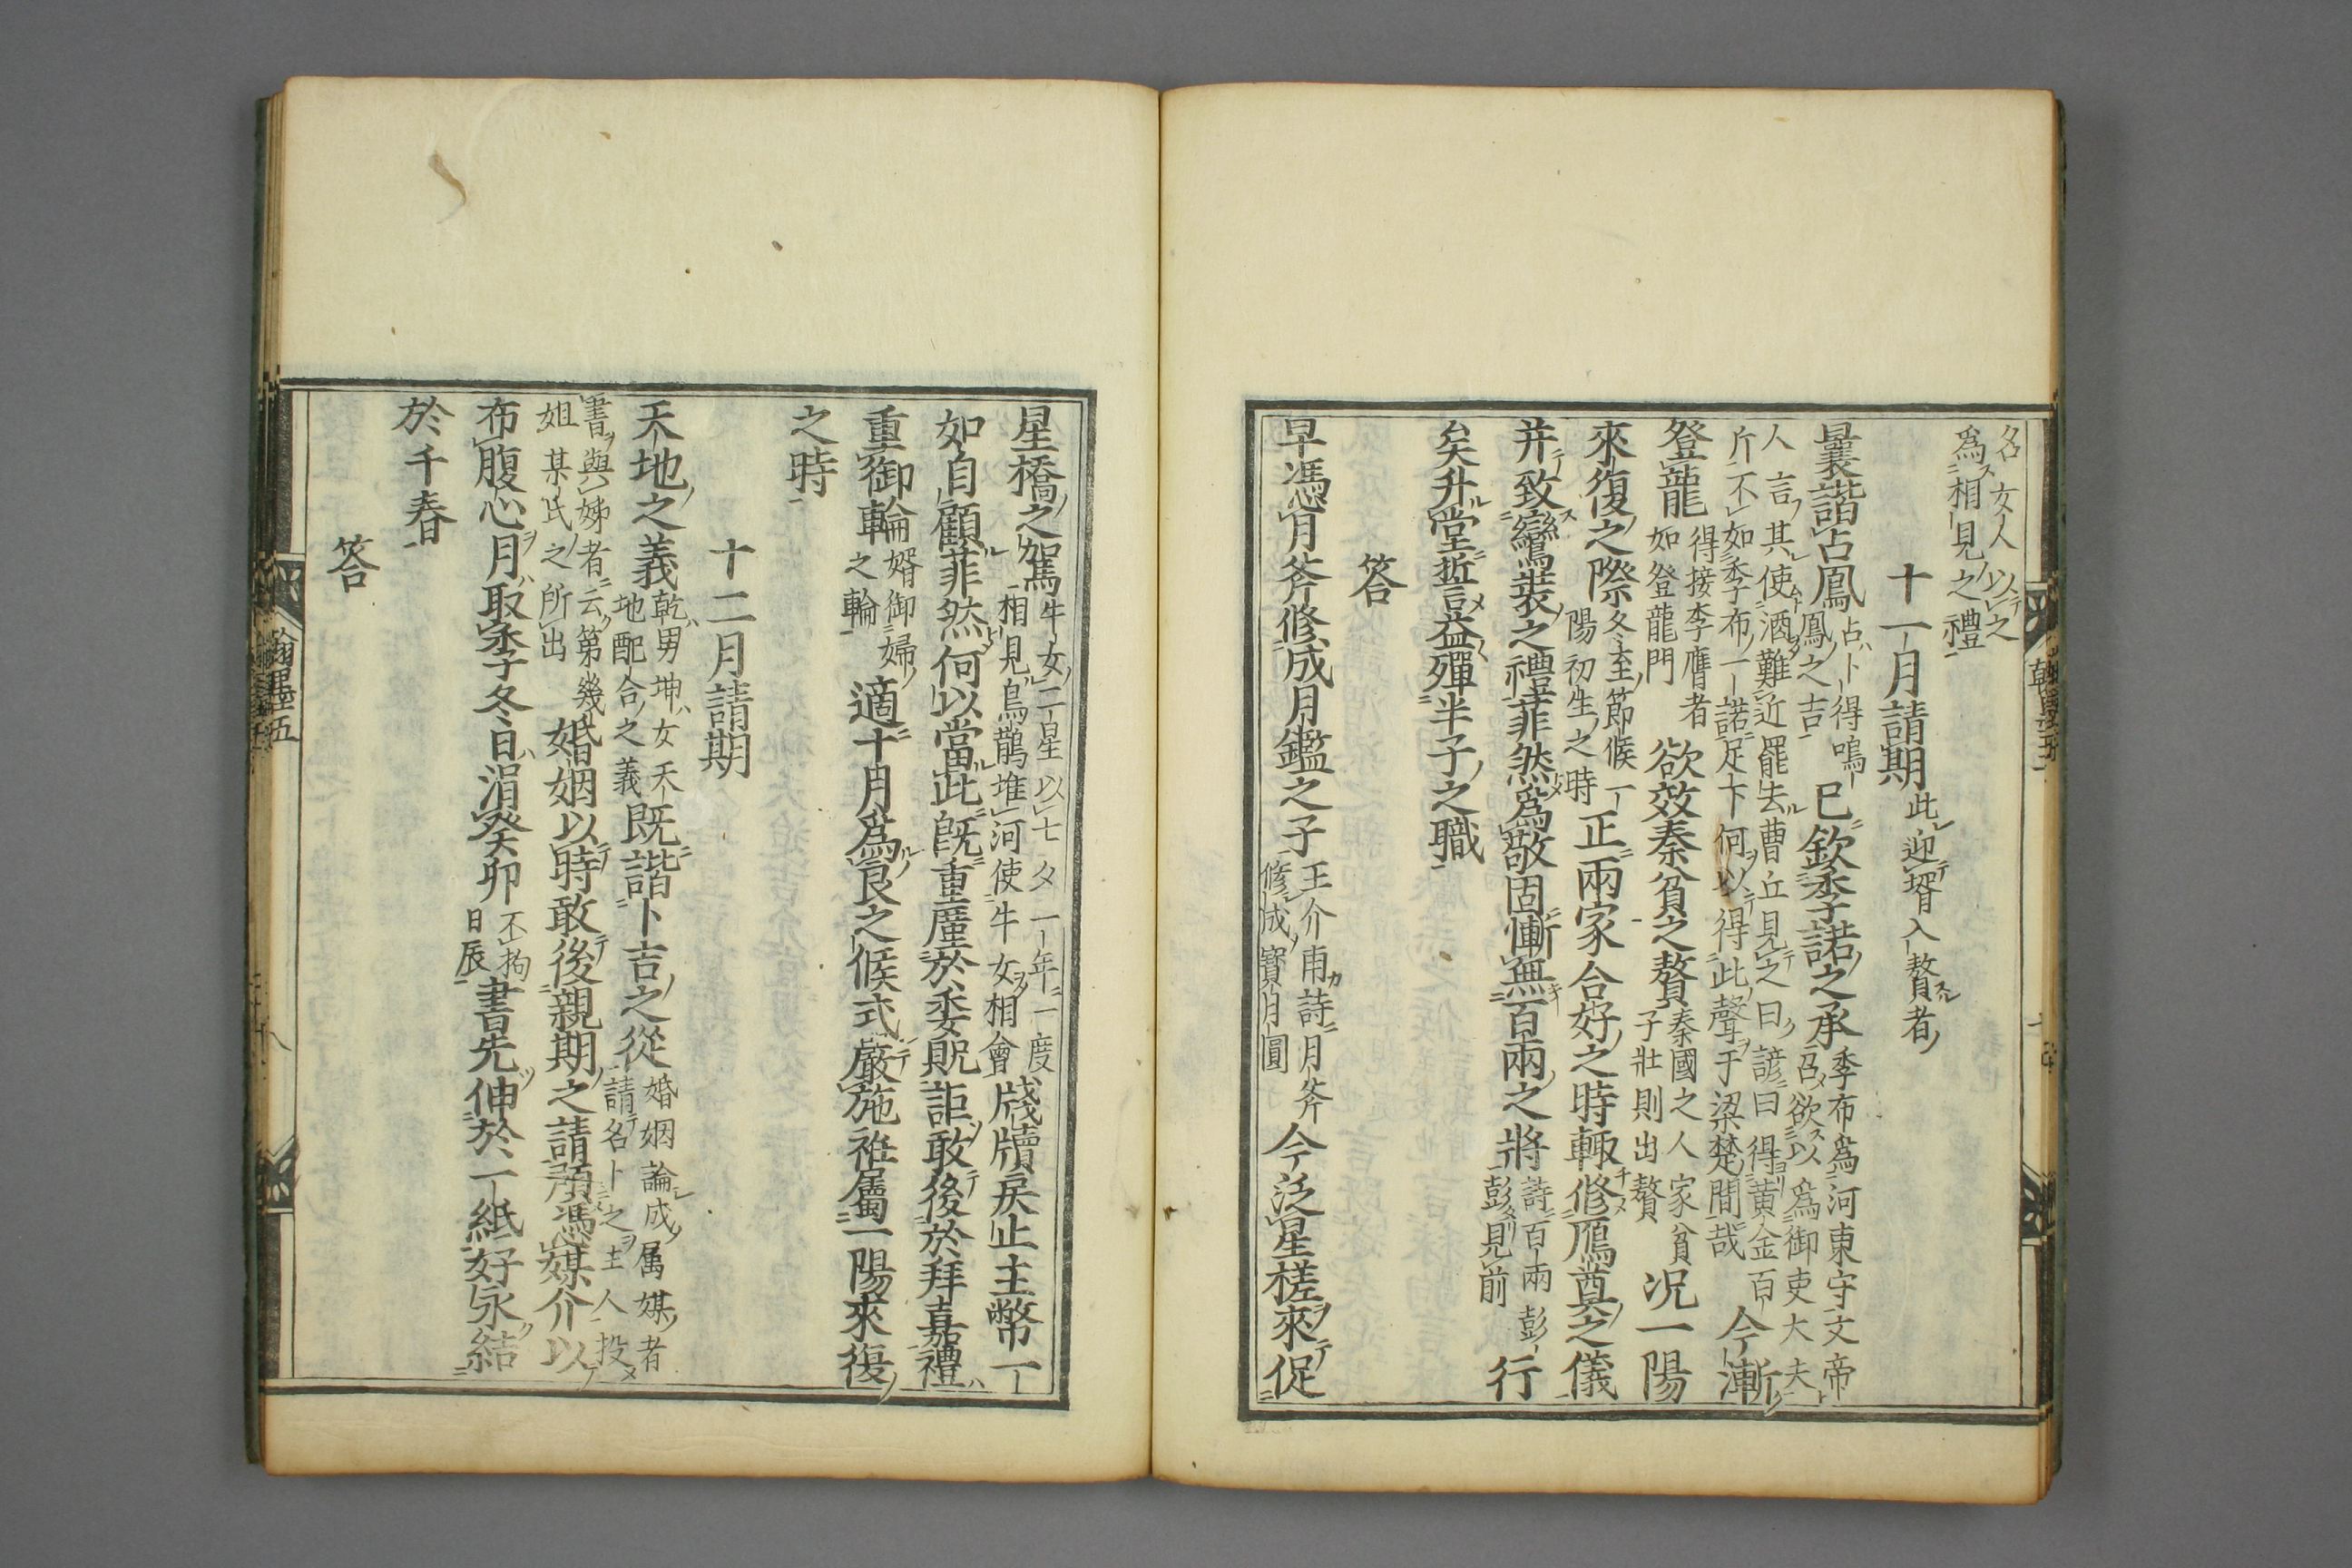 名 女人以之
爲相見之禮
十一月請期 此迎壻入贅者
曩諧占鳳 占卜得鳴鳳之吉 已欽季諾之承 季布爲河東守文帝召欲以爲御史大夫
人言其使酒難近罷去曹丘見之曰諺曰得黃金百
斤不如季布一諾足下何以得此聲于梁楚間哉 今漸
登龍 得接李膺者如登龍門 欲效秦貧之贅 秦國之人家貧子壯則出贅 况一陽
來復之際 冬至節候一陽初生之時 正兩家合好之時輙修鴈奠之儀
并致鸞裝之禮菲然爲敬固慚無百兩之將 詩百兩彭彭見前 行
矣升堂誓言益殫半子之職
答
早馮月斧修成月鑑之子 王介甫詩月斧修成寳月圓 今泛星槎來促
星橋之駕 牛女二星以七夕一年一度相見烏鵲堆河使牛女相會 牋牘戾止主幣一
如自顧菲然何以當此旣重廑於委貺詎敢後於拜嘉禮
重御輪 婿御婦之輪 適十月爲良之候式嚴施袵屬一陽來復
之時
十二月請期
天地之義 乾男坤女天地配合之義 既諧卜吉之從 婚姻論成属媒者請名卜之主人投
書與姊者云第幾姐某氏之所出 婚姻以時敢後親期之請頋馮媒介以
布腹心月取季冬日涓癸卯 不拘日辰 書先伸於一紙好永結
於千春
答
翰墨五